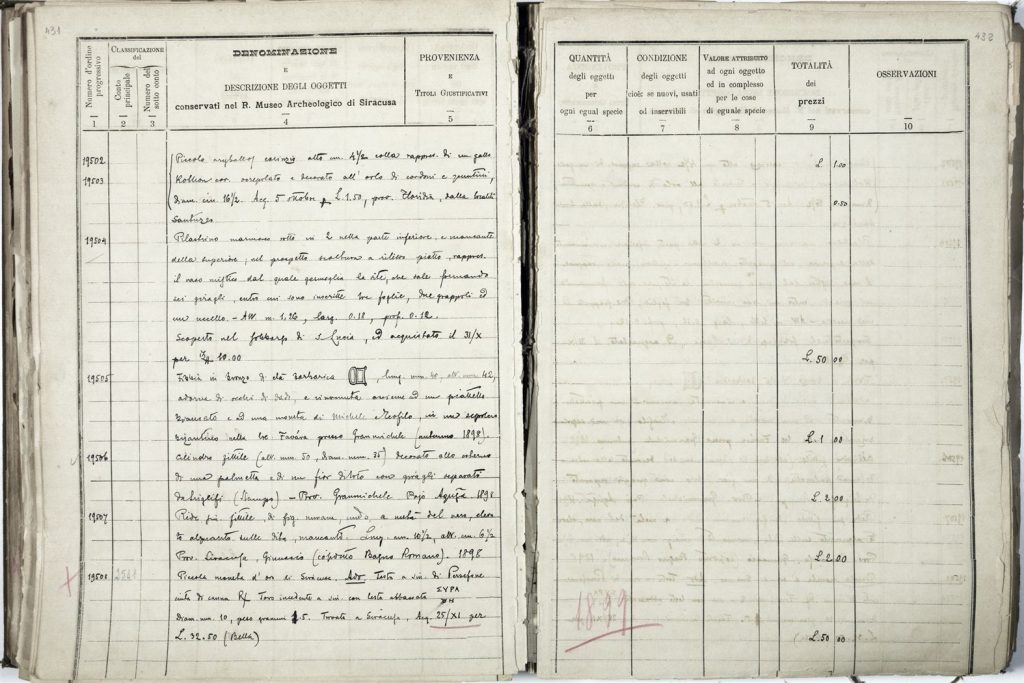 431
Numero d'ordine progressivo
Classificazione del
Conto principale
Numero del sotto conto
DENOMINAZIONE
E
DESCRIZIONE DEGLI OGGETTI
conservati nel R. Museo Archeologico di Siracusa
PROVENIENZA
E
Titoli Giustificativi
1 2 3 4 5
19502 Piccolo aryballos corinzio alto cm. 4½ colla rappres. di un gallo
19503 Kothon cor. e decorato all'orlo di cordoni e puntini,
diam. cm. 16½. Acq. 5 ottobre L. 1.50, prov. Floridia, dalla località
19504 Pilastrino marmoreo rotto in 2 nella parte inferiore, e mancante
della superiore, nel prospetto scultura a rilievo piatto, rappres.
il vaso mistico dal quale germoglia la vite, che sale formando
sei giragli, entro cui sono inscritte tre foglie, due grappoli ed
un uccello. - Alt. m. 1.26, larg. 0.18, prof. 0.12.
Scoperto nel di S. Lucia, ed acquistato il 31/X
per 10.00
19505 Fibbia in bronzo di età barbarica , lung. mm. 40, alt. mm 42,
adorna di occhi di dado, e rinvenuta assieme ad un piattello
e ad una moneta di Michele e Teofilo, in un sepolcro
bizantino nella Favara presso Grammichele (autunno 1898).
19506 Cilindro fittile (alt. mm. 50, diam. mm. 35) decorato allo
di una palmetta e di un fior di loto con giragli separati
da triglifi (Stampo) - Prov. Grammichele 1898
19507 fittile, di fig. umana, nudo, a metà del vero,
mancante. Lung. cm. 10½, alt. cm. 6½
Prov. Siracusa, Ginnasio (cosidetto Bagno Romano). 1898
19508 2581 Piccola moneta d'oro di Siracusa. Testa a sin. di Persefone
cinta di canna R/ Toro incedente a sin. con testa abbassata ΣΥΡΑ
Diam. mm. 10, peso grammi 1.5. Trovata a Siracusa, Acq. 25/XI per
L. 32.50 (Bella)
432
QUANTITÀ
degli oggetti
per
ogni egual specie
CONDIZIONE
degli oggetti
cioè: se nuovi, usati
od inservibili
Valore attribuito
ad ogni oggetto
ed in complesso
per le cose
di eguale specie
TOTALITÀ
dei
prezzi
OSSERVAZIONI
6 7 8 9 10
L 1.00
0.50
L. 50 00
L. 1 00
L. 2 00
L. 2 00
1899
L. 50 00